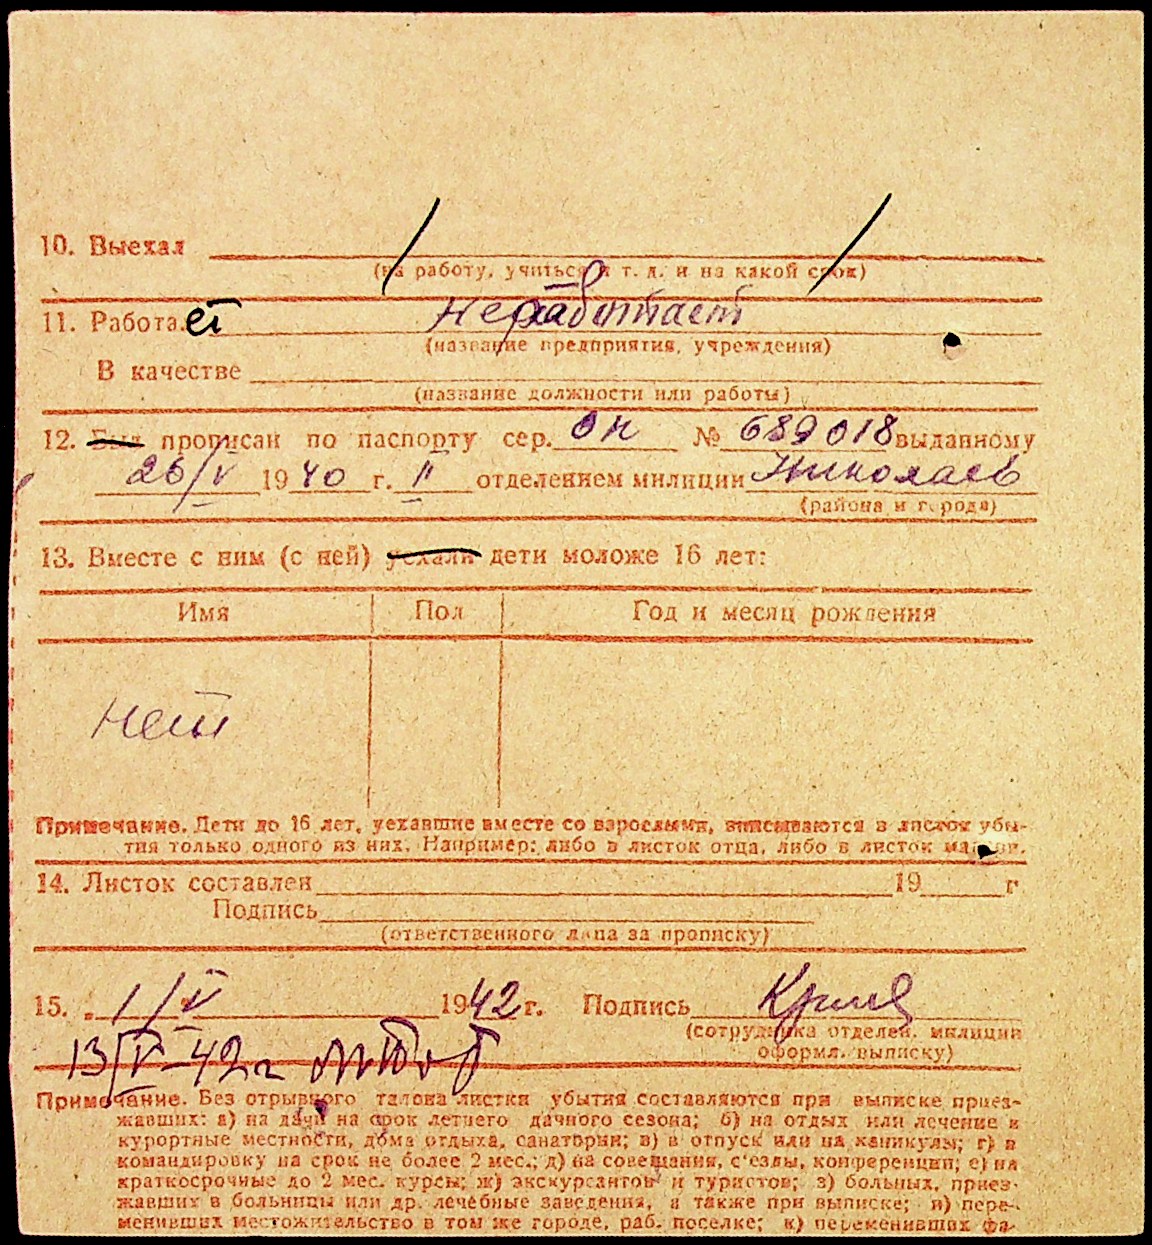 10. Выехал
(на работу, учиться и т. д. и на какой срок)
11. Работает не работает
(название предприятия, учреждения)
В качестве
(название должности или работы)
12. Был прописан по паспорту сер. ОН № 689018 выданному
26/V 1940 г. II отделением милиции Николаев
(района и города)
13. Вместе с ним (с ней) уехали дети моложе 16 лет:
Имя Пол Год и месяц рождения
нет
Примечание. Дети до 16 лет, уехавшие вместе со взрослыми, вписываются в листок убы-
тия только одного из них. Например: либо в листок отца, либо в листок матери.
14. Листок составлен 19 г
Подпись
(ответственного лица за прописку)
15. 1/V 1942 г. Подпись
(сотрудника отделен. милиции
оформл. выписку)
13/V-42г
Примечание. Без отрывного талона листки убытия составляются при выписке приез-
жавших: а) на дачи на срок летнего дачного сезона; б) на отдых или лечение в
курортные местности, дома отдыха, санатории; в) в отпуск или на каникулы; г) в
командировку на срок не более 2 мес.; д) на совещания, с'езды, конференции; е) на
краткосрочные до 2 мес. курсы; ж) экскурсантов и туристов; з) больных, приез-
жавших в больницы или др. лечебные заведения, а также при выписке; и) пере-
менивших местожительство в том же городе, раб. поселке; к) переменивших фа-